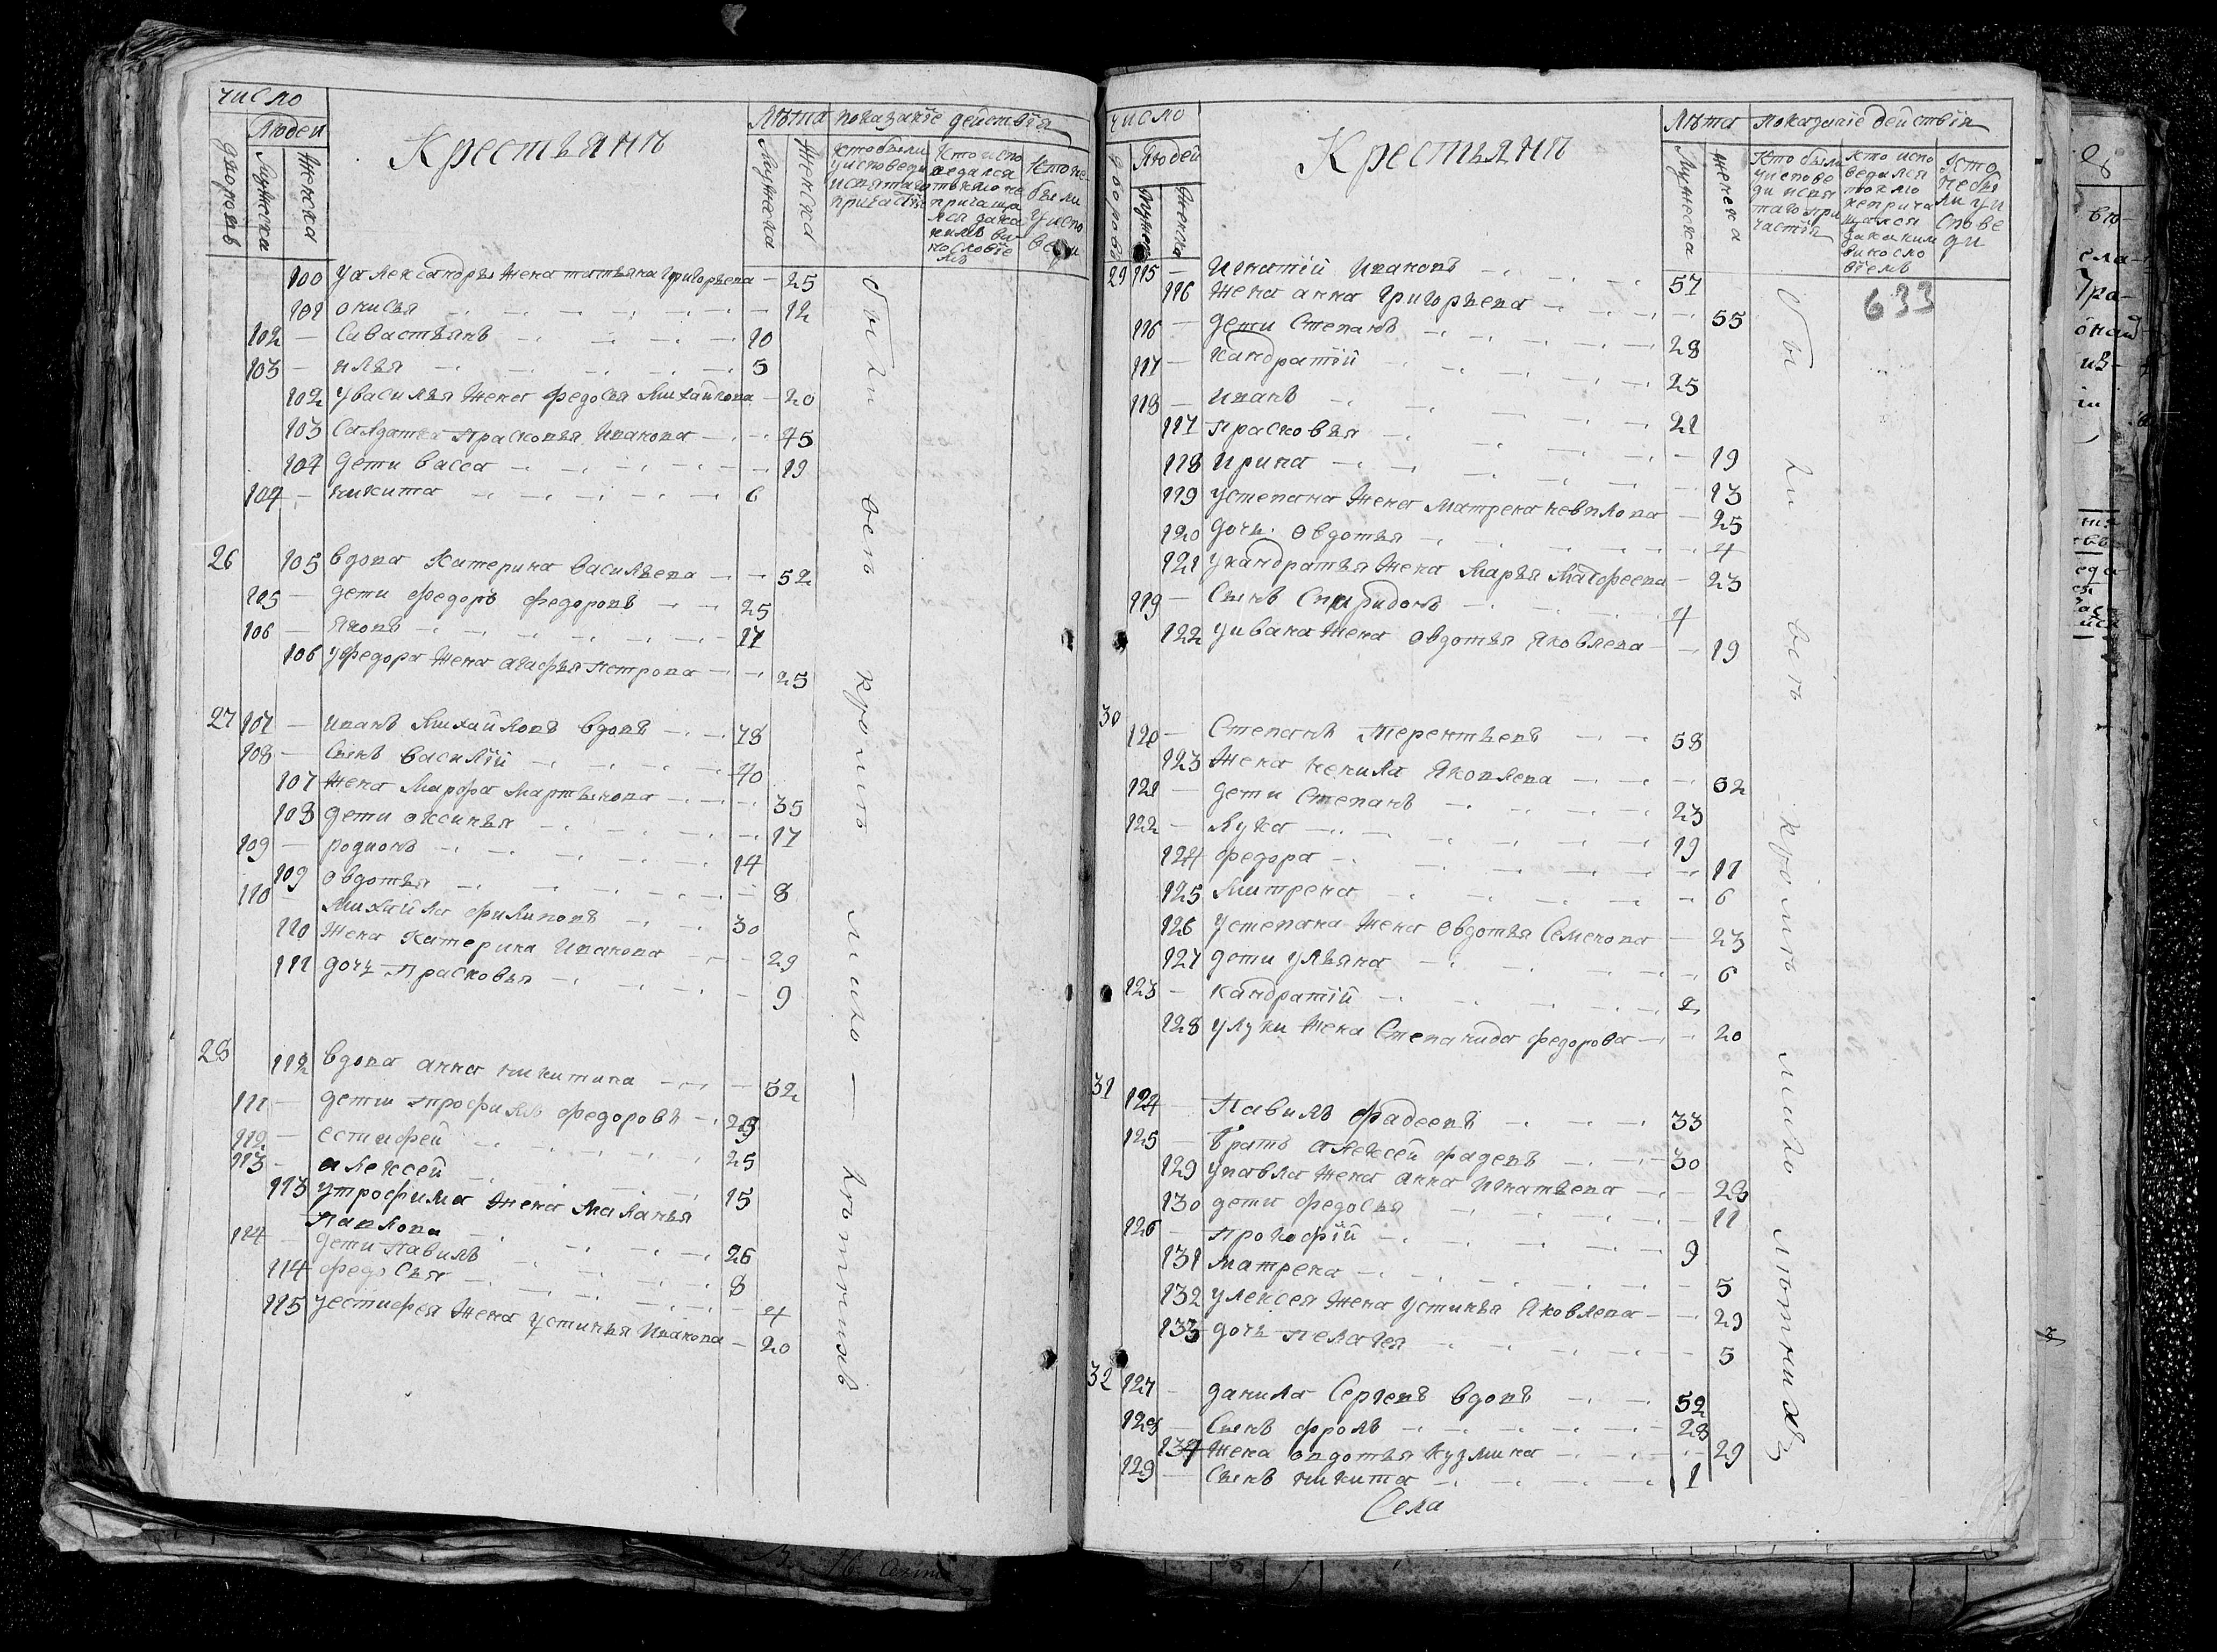 число
Людей
дворовъ
Мужеска
Женска
Крестьянъ
Лѣта
Мужеска
Женска
показанїе действїя
кто были
у исповеди
и святаго
причастїя
кто испо
ведался
токмо не
причаща
лся и за ка
кимъ ви
нословїе
мъ
кто не
были
у испо
веди
100 у александры жена татьяна григорьева 25
101 анисья 12
102 Савастьянъ 10
103 илья 5
102 у василья жена федосья Михайлова 20
103 Салдатка прасковья иванова 45
104 дети васса 19
104 никита 6
26 105 вдова катерина васильева 52
105 дети федоръ федоровъ 25
106 яковъ 17
106 у федора жена агафья петрова 25
27 107 иванъ михайловъ вдовъ 78
108 Сынъ василїй 40
107 жена марфа мартынова 35
108 дети аксинья 17
109 родионъ 14
109 овдотья 8
110 михайла филиповъ 30
110 жена катерина иванова 29
111 дочь прасковья 9
28 112 вдова анна никитина 52
111 дети трофимъ федоровъ 29
112 естифей 25
113 алексей 15
113 у трофима жена маланья
павлова 26
114 дети павилъ 8
114 федосья 4
115 у естифея жена устинья иванова 20
были всѣ кромѣ мало-лѣтнихъ
число
Людей
дворовъ
Мужеска
Женска
Крестьянъ
Лѣта
Мужеска
женска
Показанїе действїя
кто были
у испове
ди и свя
таго при
частїя
кто испо
ведался
токмо
не прича
щался
за каким
винosло
вїемъ
кто
небы
ли у и
спове
ди
633
29 115 Игнатїй Ивановъ 57
116 жена анна григорьева 55
116 дети Степанъ 28
117 кандратїй 25
118 иванъ 21
117 прасковья 19
118 ирина 13
119 у степана жена матрена невилова 25
120 дочь овдотья 4
121 у кандратья жена марья матфеева 23
119 Сынъ Спиридонъ 4
122 у ивана жена овдотья яковлева 19
30 120 Степанъ терентьевъ 58
123 жена ненила яковлева 52
121 дети Степанъ 23
122 лука 19
124 федора 11
125 митрена 6
126 у степана жена овдотья Семенова 23
127 дети ульяна 6
123 кандратїй 2
128 у луки жена Степанида федорова 20
31 124 павилъ фадеевъ 33
125 братъ алексей фадевъ 30
129 у павла жена анна игнатьева 28
130 дети федосья 11
126 прокофїй 9
131 матрена 5
132 у лексея жена устинья яковлева 29
133 дочь пелагея 5
32 127 данила Сергевъ вдовъ 52
128 Сынъ фролъ 28
134 жена овдотья кузмина 29
129 Сынъ никита 1
были всѣ кромѣ мало лѣтнихъ
Села